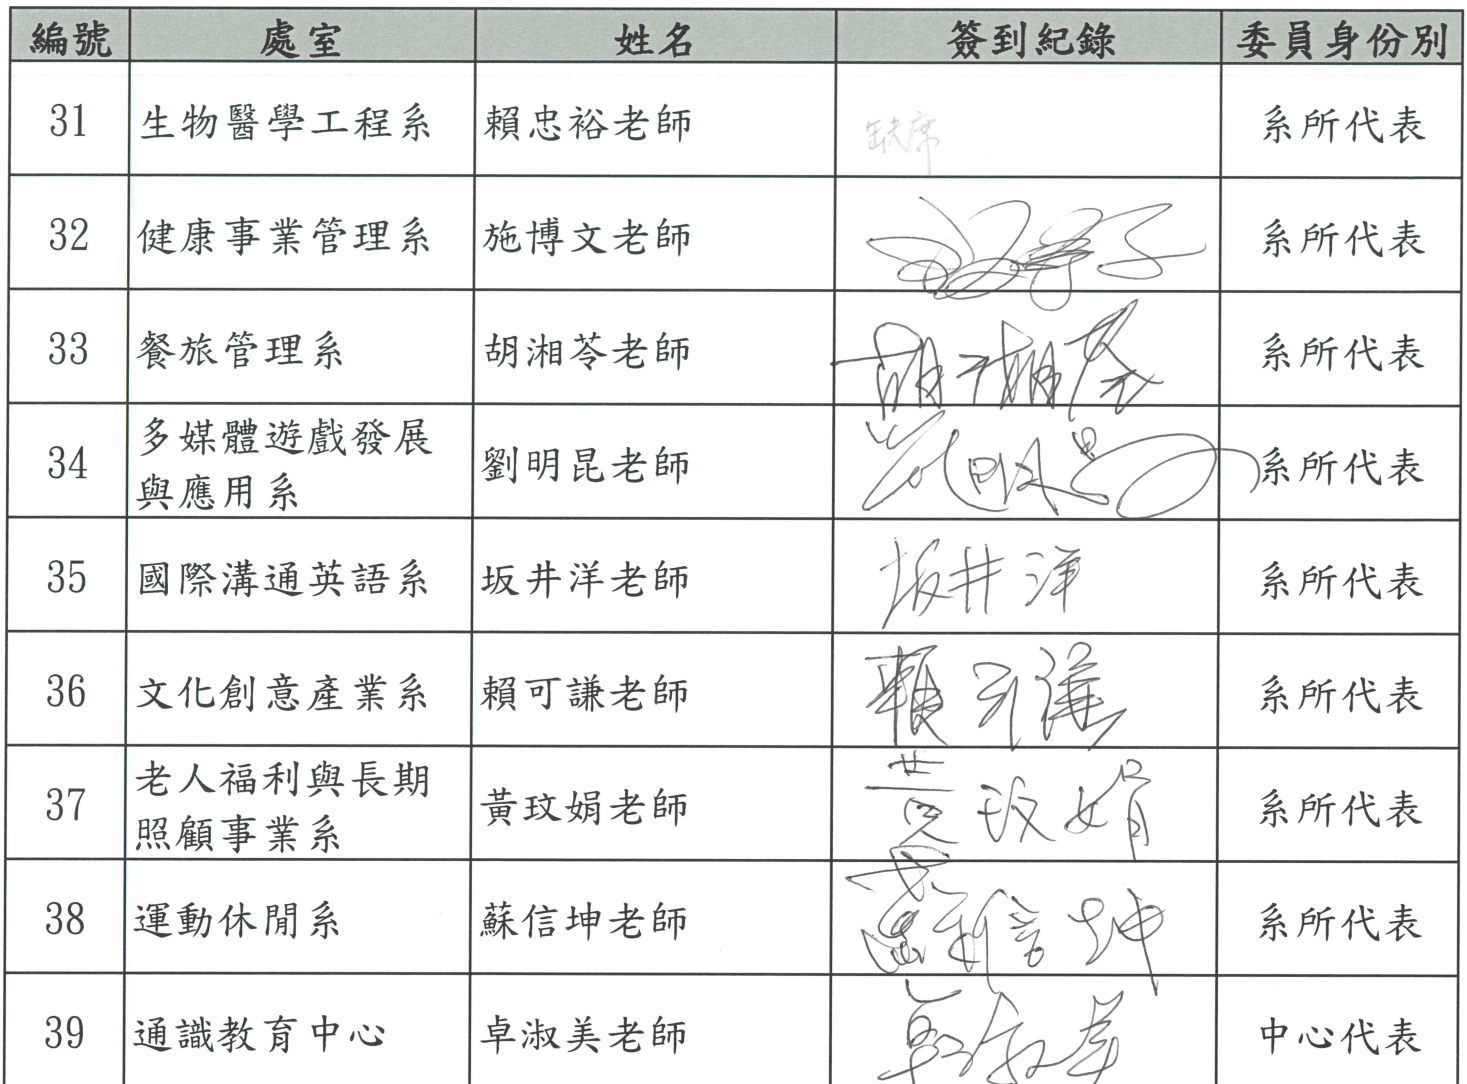 編號 處室 姓名 簽到紀錄 委員身份別
31 生物醫學工程系 賴忠裕老師 缺席 系所代表
32 健康事業管理系 施博文老師 系所代表
33 餐旅管理系 胡湘苓老師 胡湘苓 系所代表
34 多媒體遊戲發展
與應用系 劉明昆老師 系所代表
35 國際溝通英語系 坂井洋老師 坂井洋 系所代表
36 文化創意產業系 賴可謙老師 賴可謙 系所代表
37 老人福利與長期
照顧事業系 黃玟娟老師 黃玟娟 系所代表
38 運動休閒系 蘇信坤老師 蘇信坤 系所代表
39 通識教育中心 卓淑美老師 卓淑美 中心代表